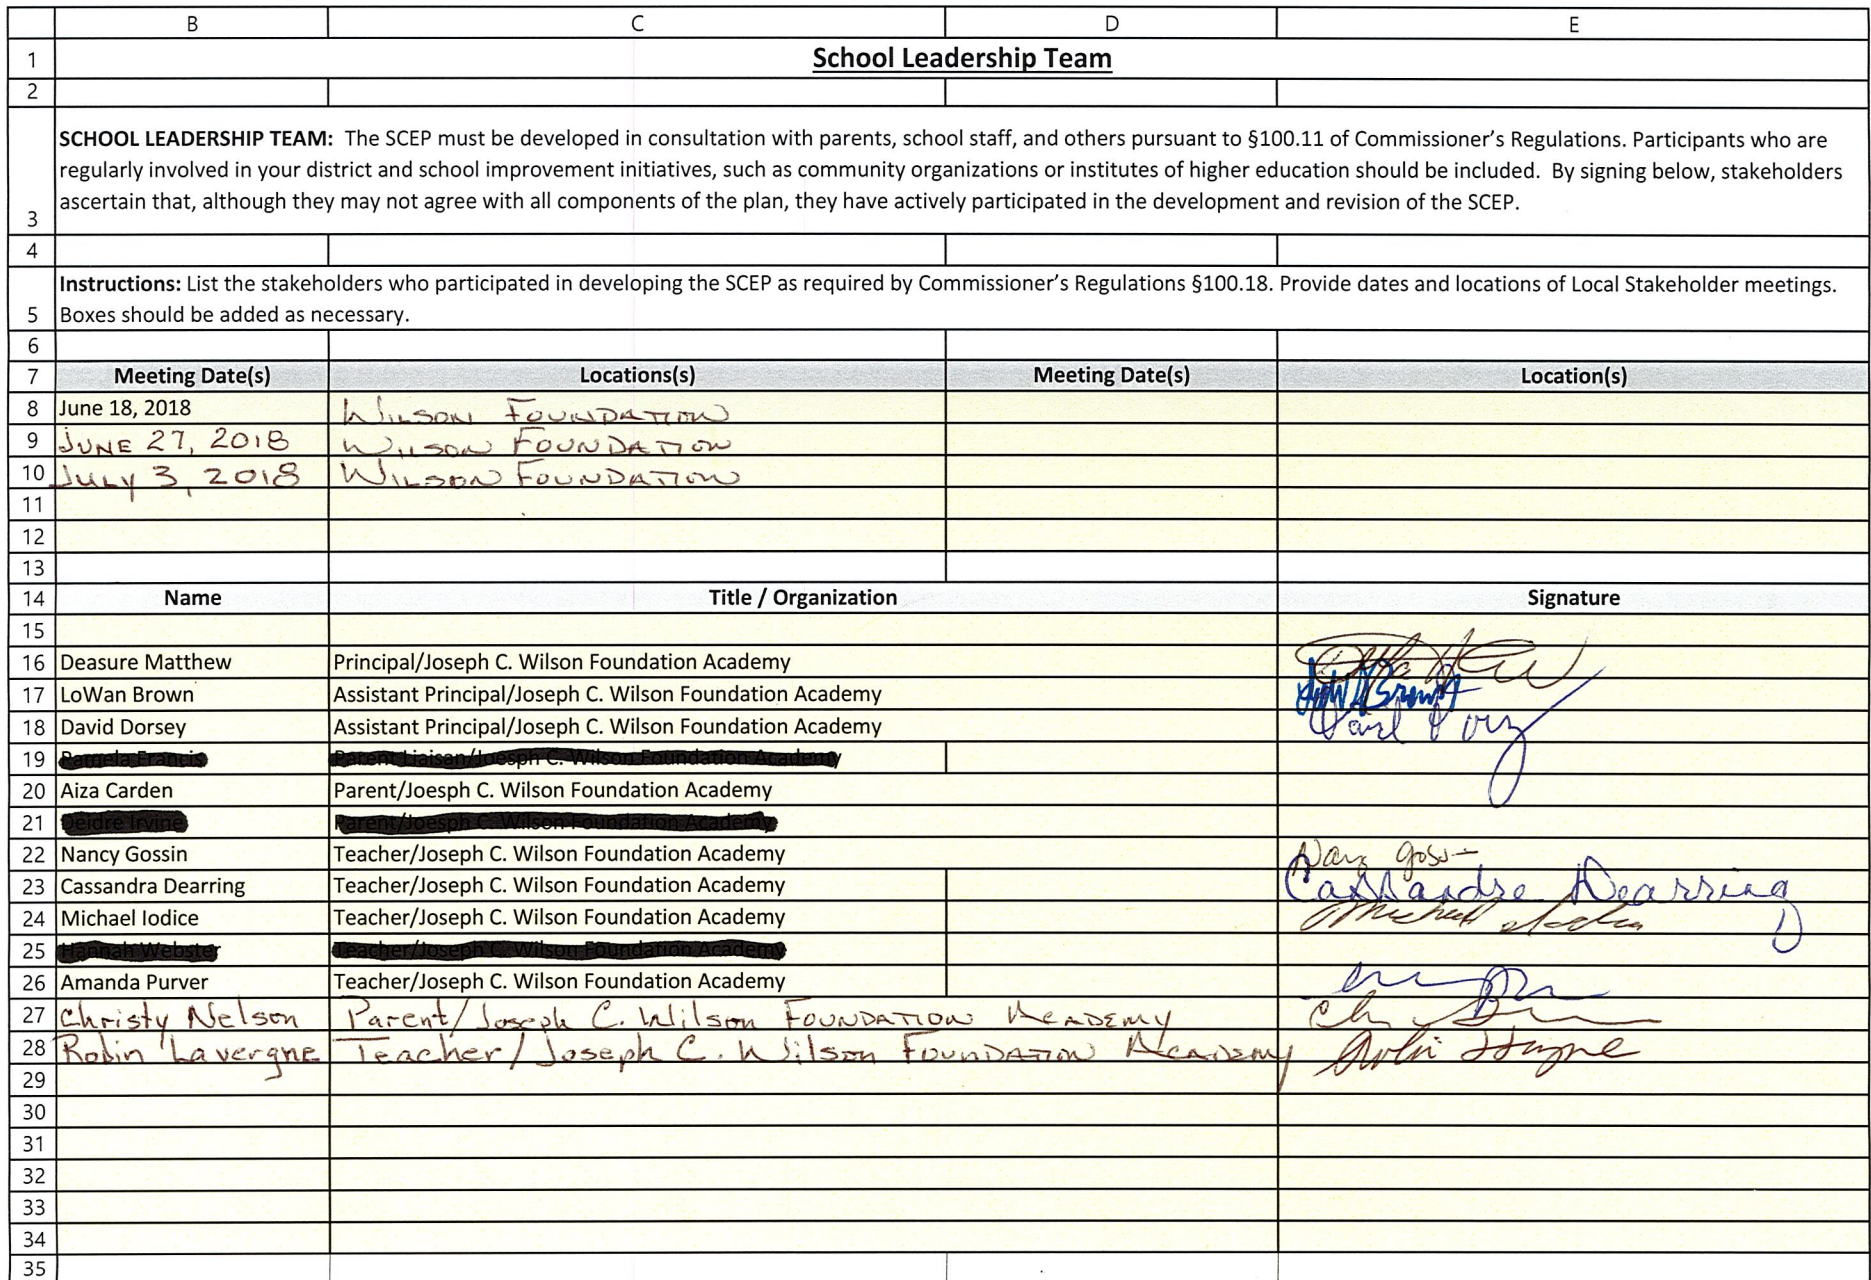 B C D E
1 School Leadership Team
2
3 SCHOOL LEADERSHIP TEAM: The SCEP must be developed in consultation with parents, school staff, and others pursuant to §100.11 of Commissioner's Regulations. Participants who are
regularly involved in your district and school improvement initiatives, such as community organizations or institutes of higher education should be included. By signing below, stakeholders
ascertain that, although they may not agree with all components of the plan, they have actively participated in the development and revision of the SCEP.
4
5 Instructions: List the stakeholders who participated in developing the SCEP as required by Commissioner's Regulations §100.18. Provide dates and locations of Local Stakeholder meetings.
Boxes should be added as necessary.
6
7 Meeting Date(s) Locations(s) Meeting Date(s) Location(s)
8 June 18, 2018 WILSON FOUNDATION
9 JUNE 27, 2018 WILSON FOUNDATION
10 JULY 3, 2018 WILSON FOUNDATION
11
12
13
14 Name Title / Organization Signature
15
16 Deasure Matthew Principal/Joseph C. Wilson Foundation Academy
17 LoWan Brown Assistant Principal/Joseph C. Wilson Foundation Academy
18 David Dorsey Assistant Principal/Joseph C. Wilson Foundation Academy
19
20 Aiza Carden Parent/Joesph C. Wilson Foundation Academy
21
22 Nancy Gossin Teacher/Joseph C. Wilson Foundation Academy
23 Cassandra Dearring Teacher/Joseph C. Wilson Foundation Academy Cassandra Dearring
24 Michael Iodice Teacher/Joseph C. Wilson Foundation Academy
25
26 Amanda Purver Teacher/Joseph C. Wilson Foundation Academy
27 Christy Nelson Parent/Joseph C. Wilson FOUNDATION ACADEMY
28 Robin Lavergne Teacher/Joseph C. Wilson FOUNDATION ACADEMY
29
30
31
32
33
34
35